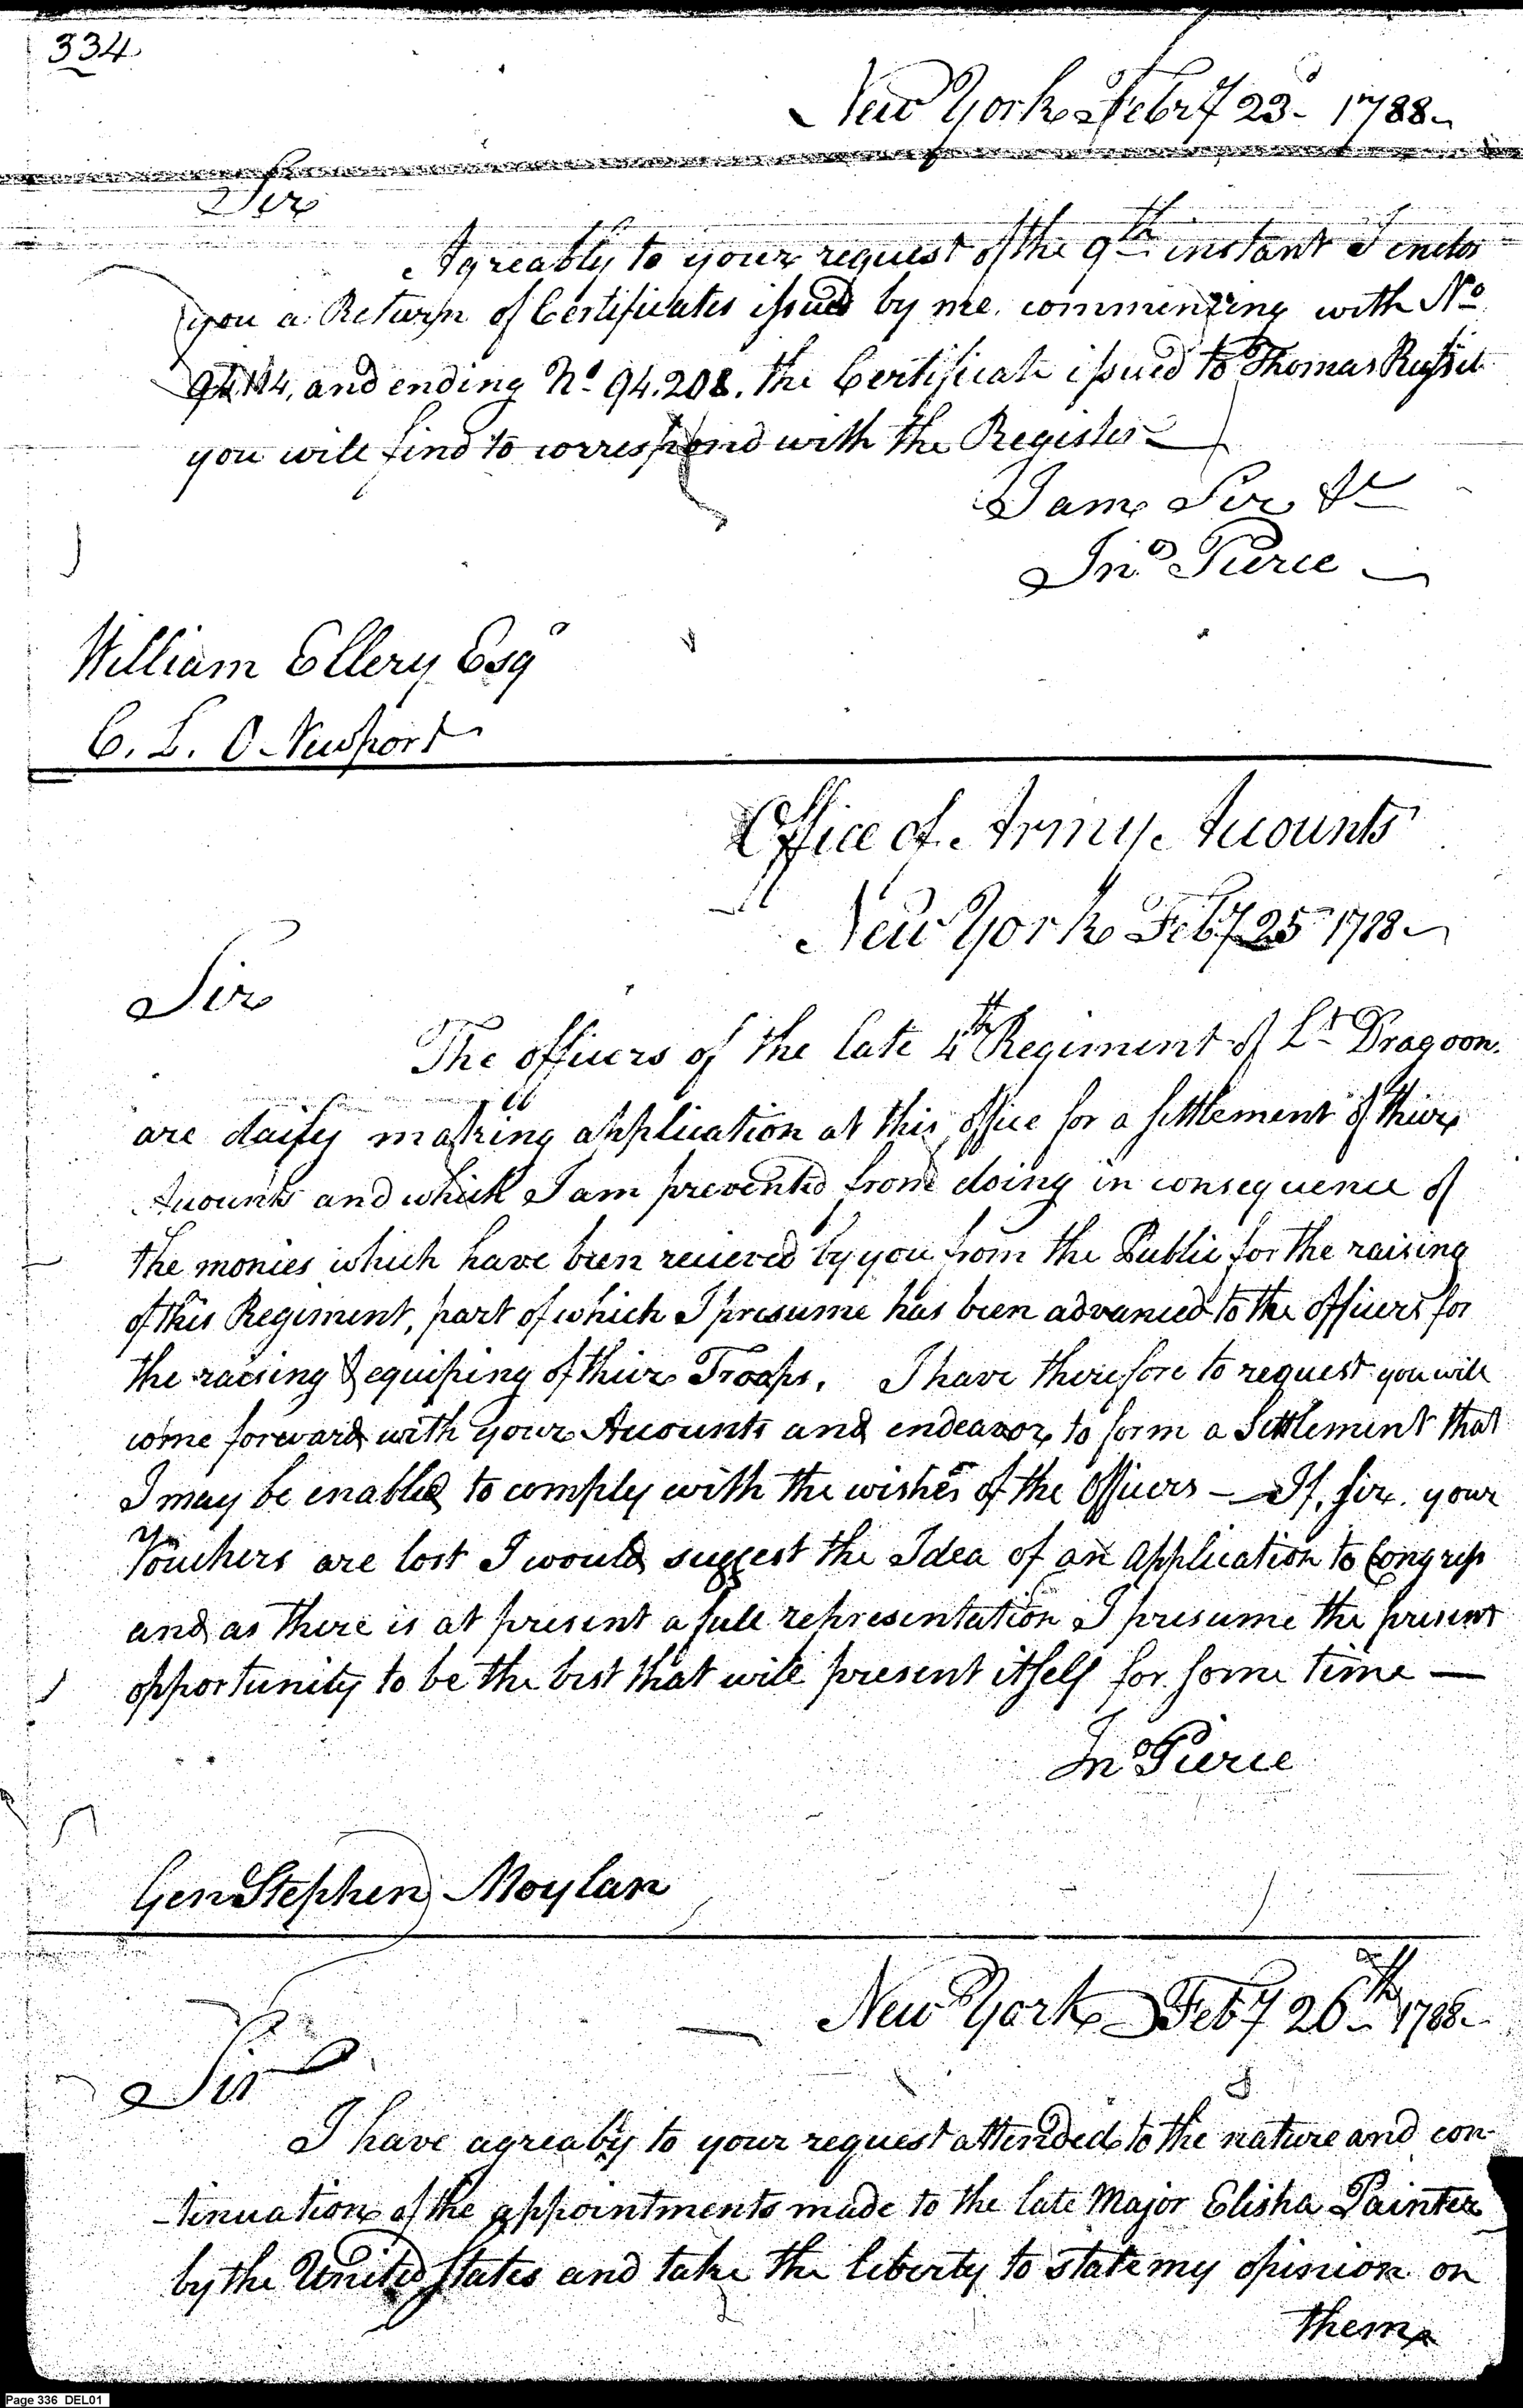 334
New York Febry 23d 1788
Sir
Agreably to your request of the 9th instant I enclos
you a Return of Certificates issued by me commenzing with No
and ending No 94.208. the Certificate issued to Thomas Russel
you will find to correspond with the Register
I am Sir &c
Jno Pierce
William Ellery Esqr
C. L. O Newport
Office of Army Accounts
New York Feby 25 1788
Sir
The officers of the late 4th Regiment of Lt Dragoon
are daily making application at this office for a settlement of their
Accounts and which I am prevented from doing in consequence of
the monies which have been recieved by you from the Public for the raising
of this Regiment, part of which I presume has been advanced to the officers for
the raising & equiping of their Troops. I have therefore to request you will
come forward with your Accounts and endeavor to form a Settlement that
I may be enabled to comply with the wishes of the Officers — If, sir, your
Vouchers are lost I would suggest the Idea of an Application to Congress
and as there is at present a full representation I presume the present
opportunity to be the best that will present itself for some time —
Jno Pierce
Gen Stephen Moylan
New York Feby 26th 1788
Sir
I have agreably to your request attended to the nature and con-
-tinuation of the appointments made to the late Major Elisha Painter
by the United States and take the liberty to state my opinion on
them
Page 336 DEL01